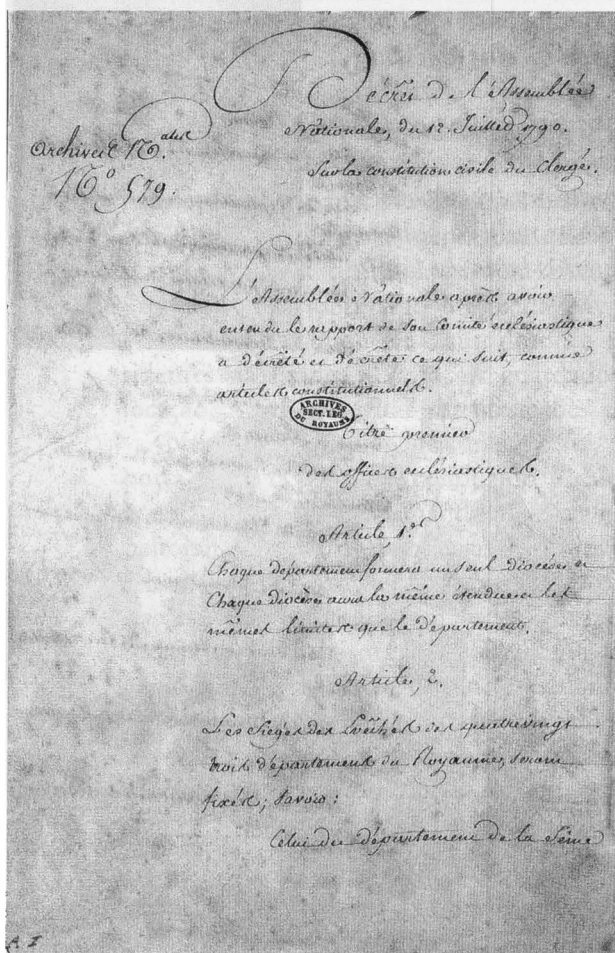 Décret de l'Assemblée
Nationale, du 12. Juillet 1790.
Sur la constitution civile du Clergé.
Archives Nales
No 579.
L'Assemblée Nationale après avoir
entendu le rapport de son Comité ecclésiastique
a décrété et décrète ce qui suit, comme
articles constitutionnels.
ARCHIVES
SECT. LEG
DU ROYAUME
Titre premier
des offices ecclésiastiques.
Article 1er
Chaque département formera un seul diocèse et
Chaque diocèse aura la même étendue et les
mêmes limites que le département.
Article, 2.
Les Sièges des Evêchés des quatrevingt
trois département du Royaume, seront
fixés; Savoir:
Celui du département de la Seine
A. I